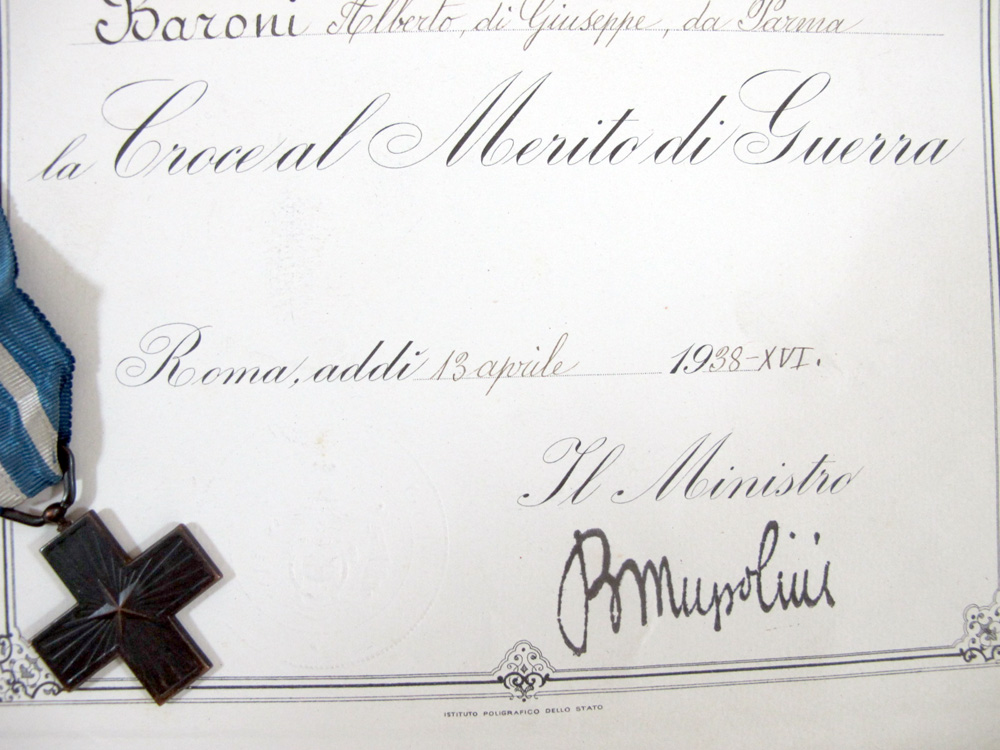 Baroni Alberto, di Giuseppe, da Parma
la Croce al Merito di Guerra
Roma, addì 13 aprile 1938-XVI.
Il Ministro
BMussolini
ISTITUTO POLIGRAFICO DELLO STATO